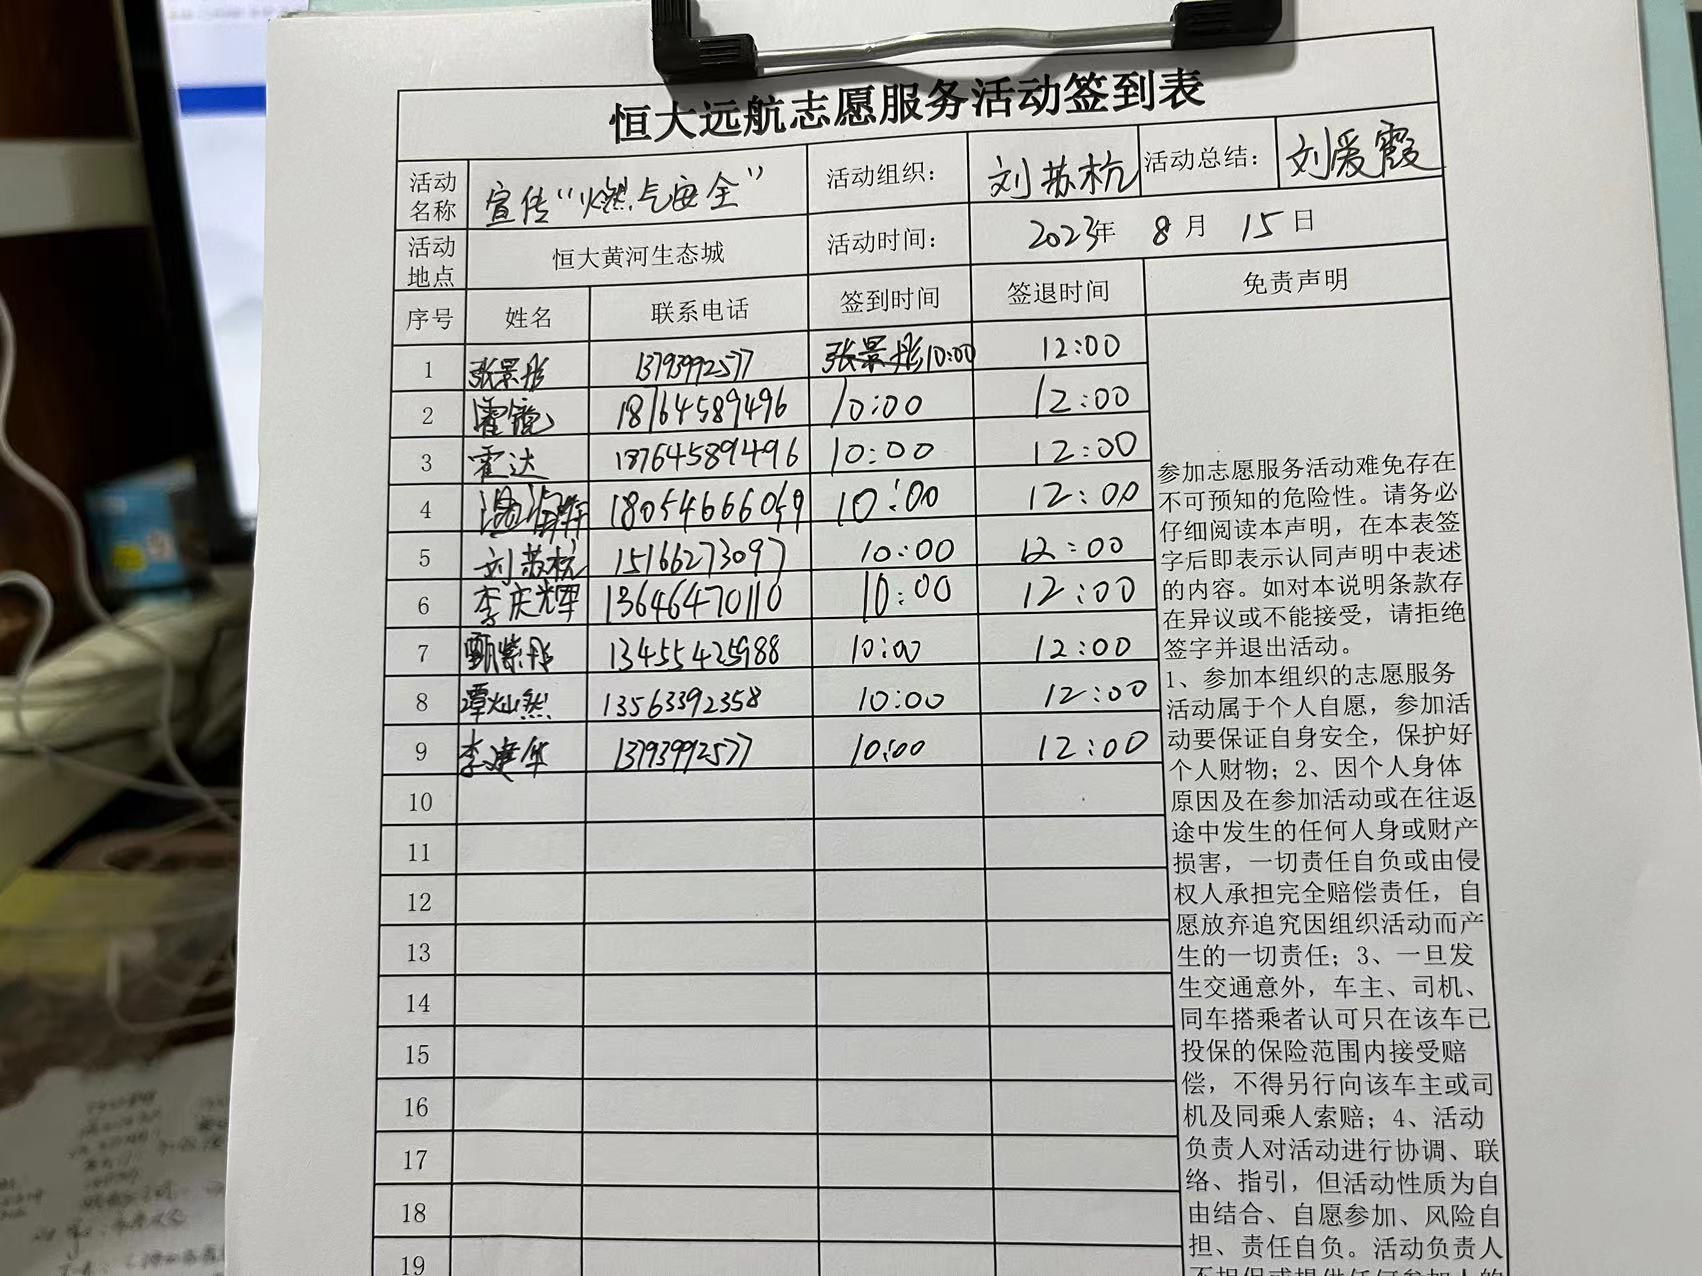 恒大远航志愿服务活动签到表
活动名称 宣传“燃气安全” 活动组织: 刘苏杭 活动总结: 刘爱霞
活动地点 恒大黄河生态城 活动时间: 2023年 8月 15日
序号 姓名 联系电话 签到时间 签退时间 免责声明
1 张景彤 13793992577 张景彤10:00 12:00
2 霍镜 18764589496 10:00 12:00
3 霍达 18764589496 10:00 12:00
4 18054666059 10:00 12:00
5 刘苏杭 15166273097 10:00 12:00
6 李庆辉 13646470110 10:00 12:00
7 甄紫彤 13455425988 10:00 12:00
8 谭灿然 13563392358 10:00 12:00
9 李建华 13793992577 10:00 12:00
10
11
12
13
14
15
16
17
18
19
参加志愿服务活动难免存在
不可预知的危险性。请务必
仔细阅读本声明，在本表签
字后即表示认同声明中表述
的内容。如对本说明条款存
在异议或不能接受，请拒绝
签字并退出活动。
1、参加本组织的志愿服务
活动属于个人自愿，参加活
动要保证自身安全，保护好
个人财物；2、因个人身体
原因及在参加活动或在往返
途中发生的任何人身或财产
损害，一切责任自负或由侵
权人承担完全赔偿责任，自
愿放弃追究因组织活动而产
生的一切责任；3、一旦发
生交通意外，车主、司机、
同车搭乘者认可只在该车已
投保的保险范围内接受赔
偿，不得另行向该车主或司
机及同乘人索赔；4、活动
负责人对活动进行协调、联
络、指引，但活动性质为自
由结合、自愿参加、风险自
担、责任自负。活动负责人
不担保或提供任何参加人的